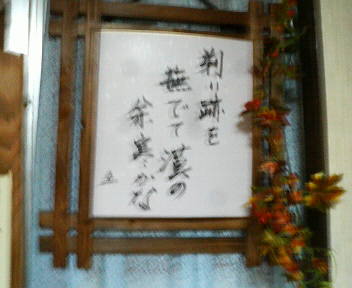 剃り跡を
撫でて漢の
余寒かな